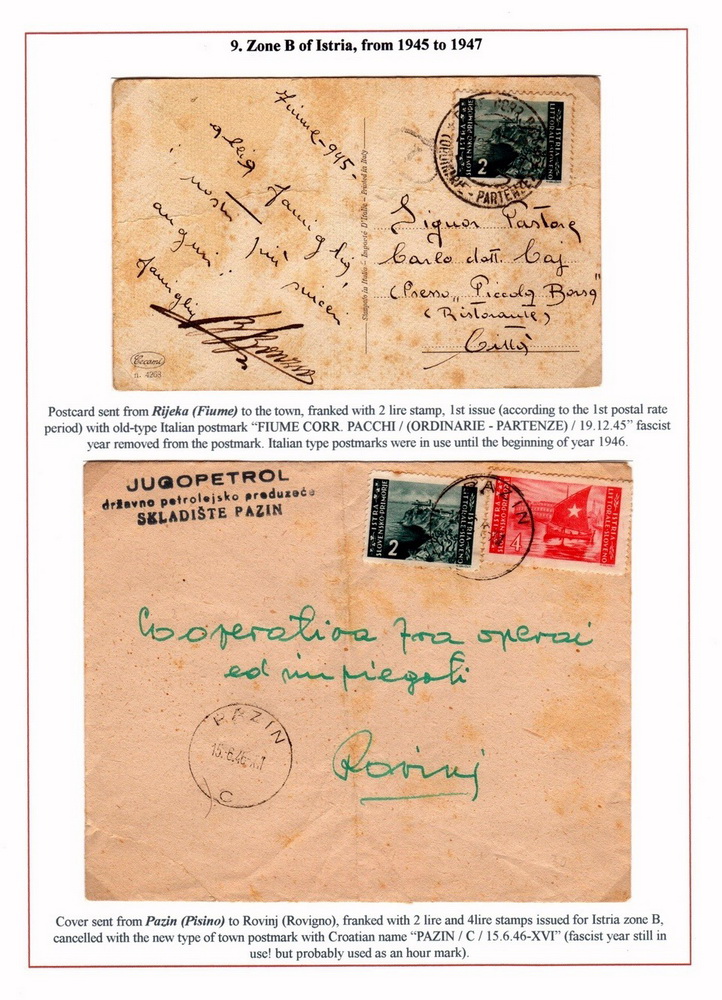 9. Zone B of Istria, from 1945 to 1947
Fiume - 945
alla famiglia
i nostri più sinceri
auguri!
famiglia
Cecami
n. 4203
Stampato in Italia - Importé D'Italie - Printed in Italy
2
ISTRA
SLOVENSKO PRIMORJE
ISTRIA
(ORDINARIE - PARTENZE)
Signor Pastore
Carlo dott. Caj
(Presso „Piccola Borsa"
(Ristorante)
Città
Postcard sent from Rijeka (Fiume) to the town, franked with 2 lire stamp, 1st issue (according to the 1st postal rate
period) with old-type Italian postmark “FIUME CORR. PACCHI / (ORDINARIE - PARTENZE) / 19.12.45” fascist
year removed from the postmark. Italian type postmarks were in use until the beginning of year 1946.
JUGOPETROL
državno petrolejsko preduzeće
SKLADIŠTE PAZIN
2
ISTRA
SLOVENSKO PRIMORJE
ISTRIA
LITTORALE SLOVENO
PAZIN
4
ISTRA
SLOVENSKO PRIMORJE
ISTRIA
LITTORALE SLOVENO
Cooperativa fra operai
ed impiegati
Rovinj
PAZIN
15.6.46-XVI
C
Cover sent from Pazin (Pisino) to Rovinj (Rovigno), franked with 2 lire and 4lire stamps issued for Istria zone B,
cancelled with the new type of town postmark with Croatian name “PAZIN / C / 15.6.46-XVI” (fascist year still in
use! but probably used as an hour mark).